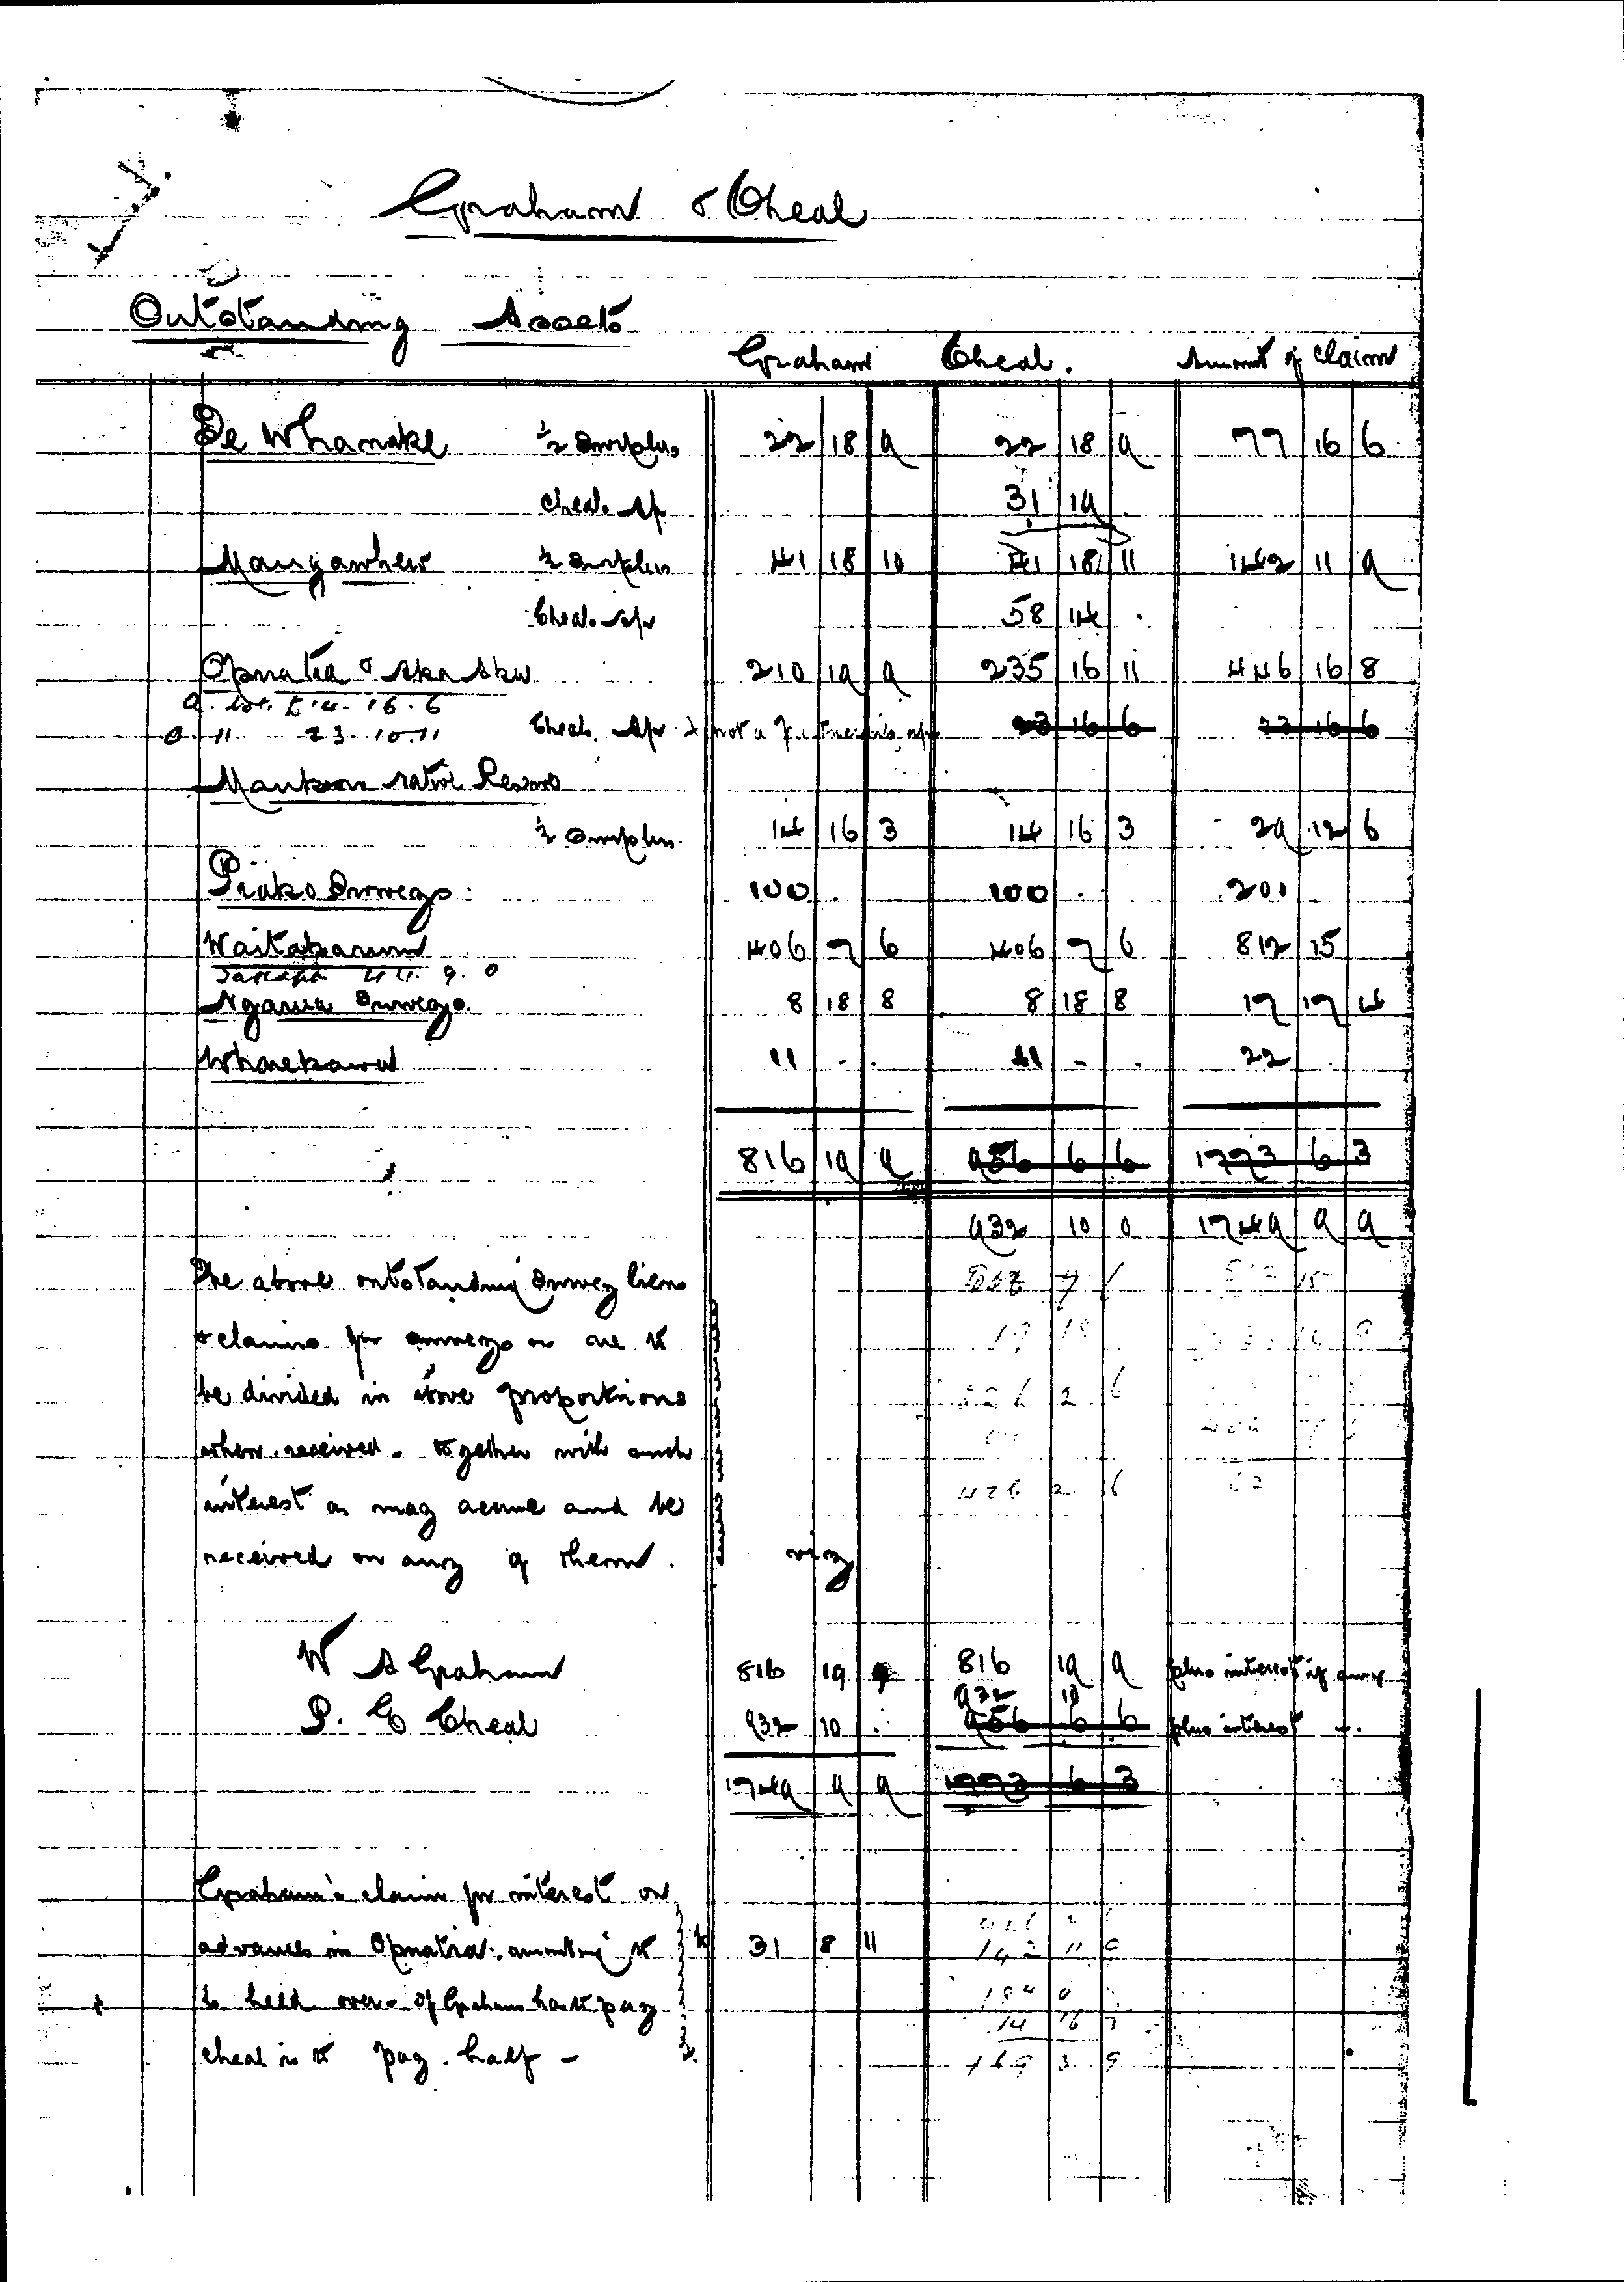 Graham & Cheal
Outstanding Assets
Graham Cheal. Amount of Claim
Te Whanake ½ Surplus 22 18 9 22 18 9 77 16 6
Cheal 31 19
½ Surplus 41 18 10 41 18 11 142 11 9
Cheal 58 14 .
Opuatia & Aka Aka 210 19 9 235 16 11 446 16 8
14. 16. 6
" 23. 10. 11 Cheal not a 23 16 6 23 16 6
Native Reserve
½ Surplus. 14 16 3 14 16 3 29 12 6
Piako Surveys. 100 . 100 . 201
Waitakaruru 406 7 6 406 7 6 812 15
44. 9. 0
Ngarua Surveys. 8 18 8 8 18 8 17 17 4
Wharekawa 11 - . 11 - . 22 .
816 19 9 956 6 6 1773 6 3
932 10 0 1749 9 9
The above outstanding Survey liens
& claims for surveys are to
be divided in above proportions
when received. together with such
interest as may accrue and be
received on any of them. viz
W A Graham 816 19 9 816 19 9 plus interest if any
932 10
P. G Cheal 932 10 . 956 6 6 plus interest
1749 9 9 1773 6 3
Graham's claim for interest on
advances in Opuatia. amounting to 31 8 11 142 11 9
is held over. If Graham has to pay 14 16 3
Cheal is to pay half - 169 3 9